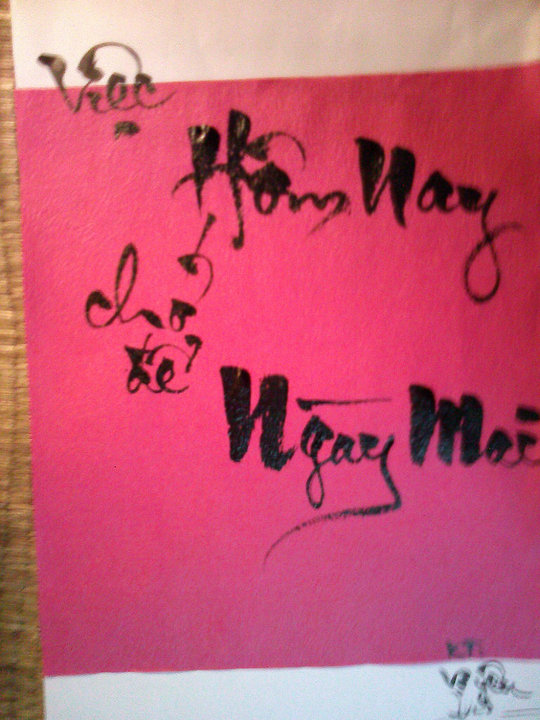 Việc
Hôm Nay
chớ
để
Ngày Mai